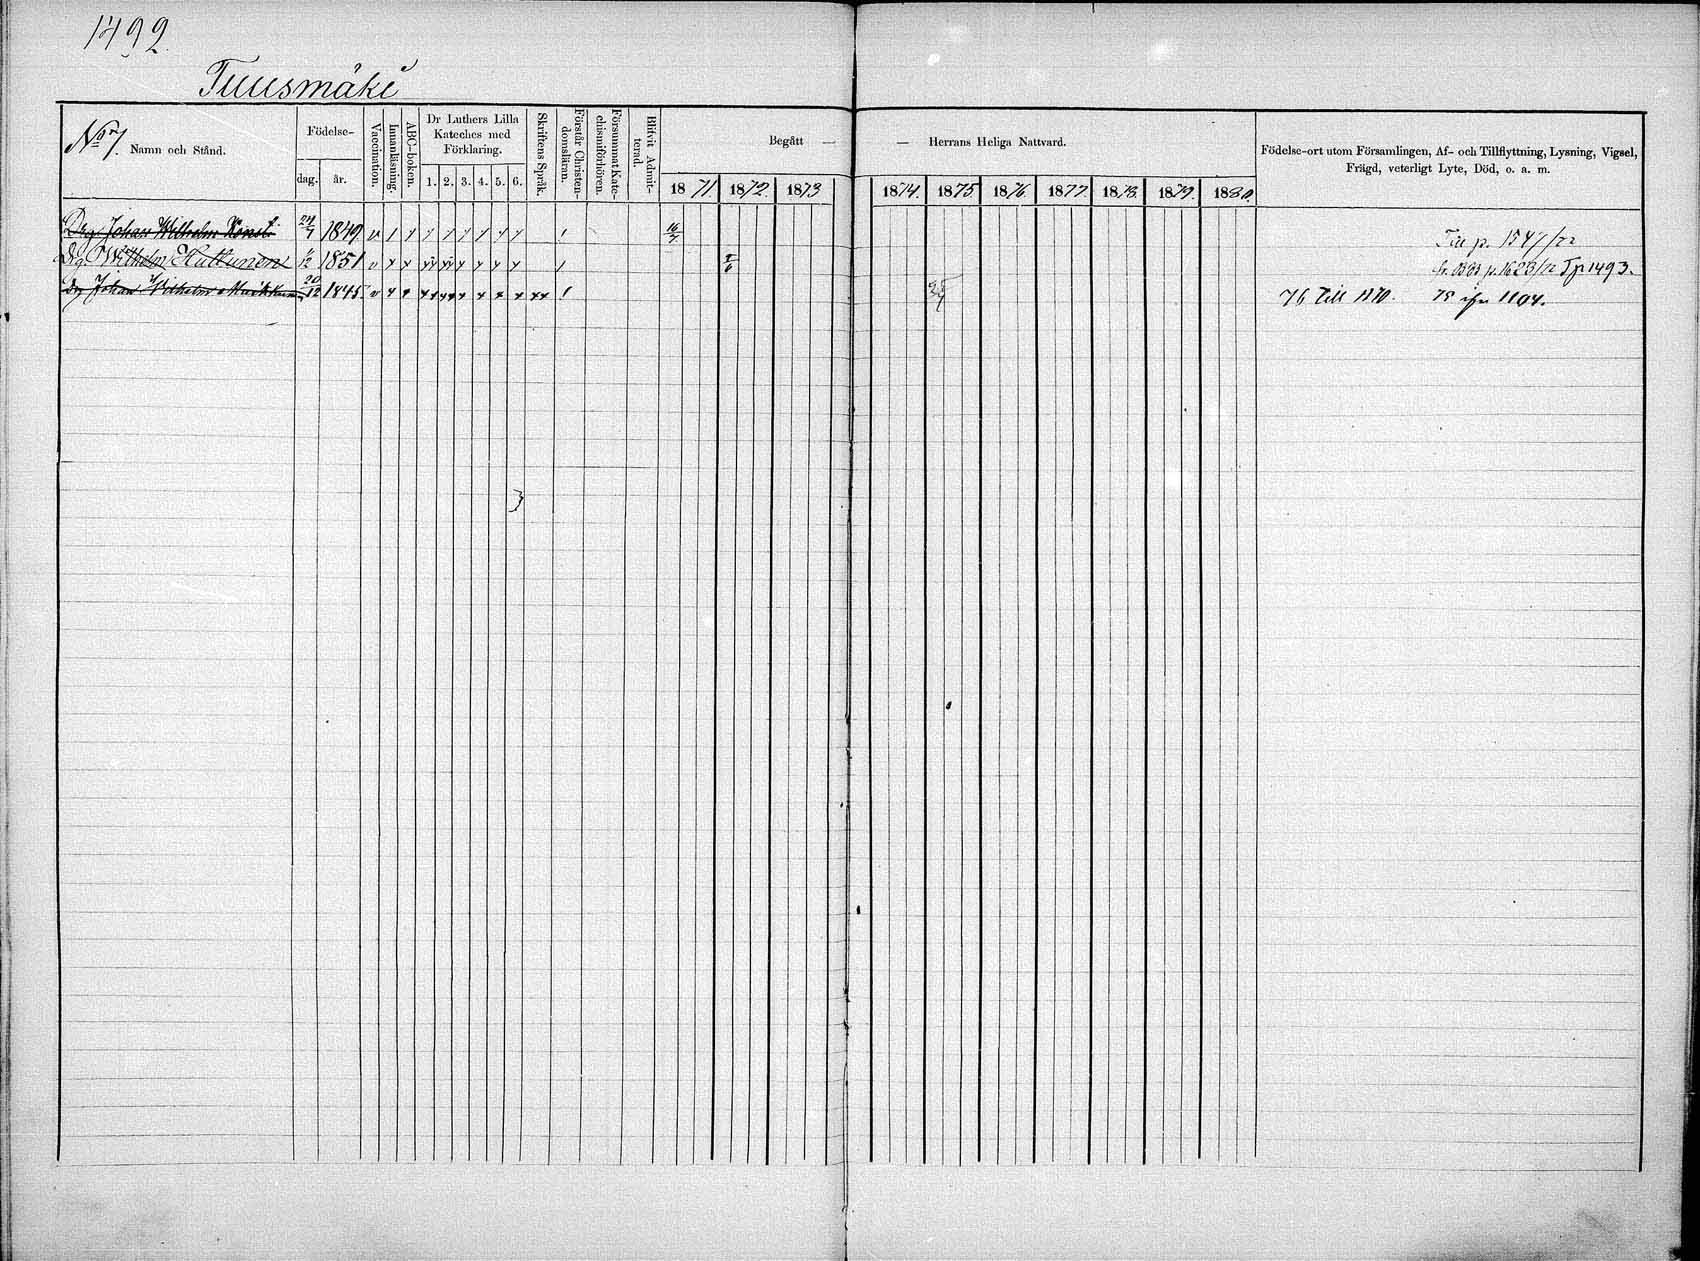 1492
Tuusmäki
No 7. Namn och Stånd.
Födelse-
dag. år.
Vaccination.
Innanläsning.
ABC-boken.
Dr Luthers Lilla
Kateches med
Förklaring.
1. 2. 3. 4. 5. 6.
Skriftens Språk.
Förstår Christen-
domsläran.
Försummat Kate-
chismiförhören.
Blifvit Admit-
terad.
Begått — — Herrans Heliga Nattvard.
1871. 1872. 1873 1874. 1875. 1876 1877 1878. 1879. 1880.
Födelse-ort utom Församlingen, Af- och Tillflyttning, Lysning, Vigsel,
Frägd, veterligt Lyte, Död, o. a. m.
Drg Johan Wilhelm 1849 v 16/7 Till p. 1547/72
Drg. Wilhelm Huttunen 1851 v p. 1623/72 T p 1493.
Drg Johan Wilhelm 20/12 1845 v 76 till 1170. 75 ifr 1104.